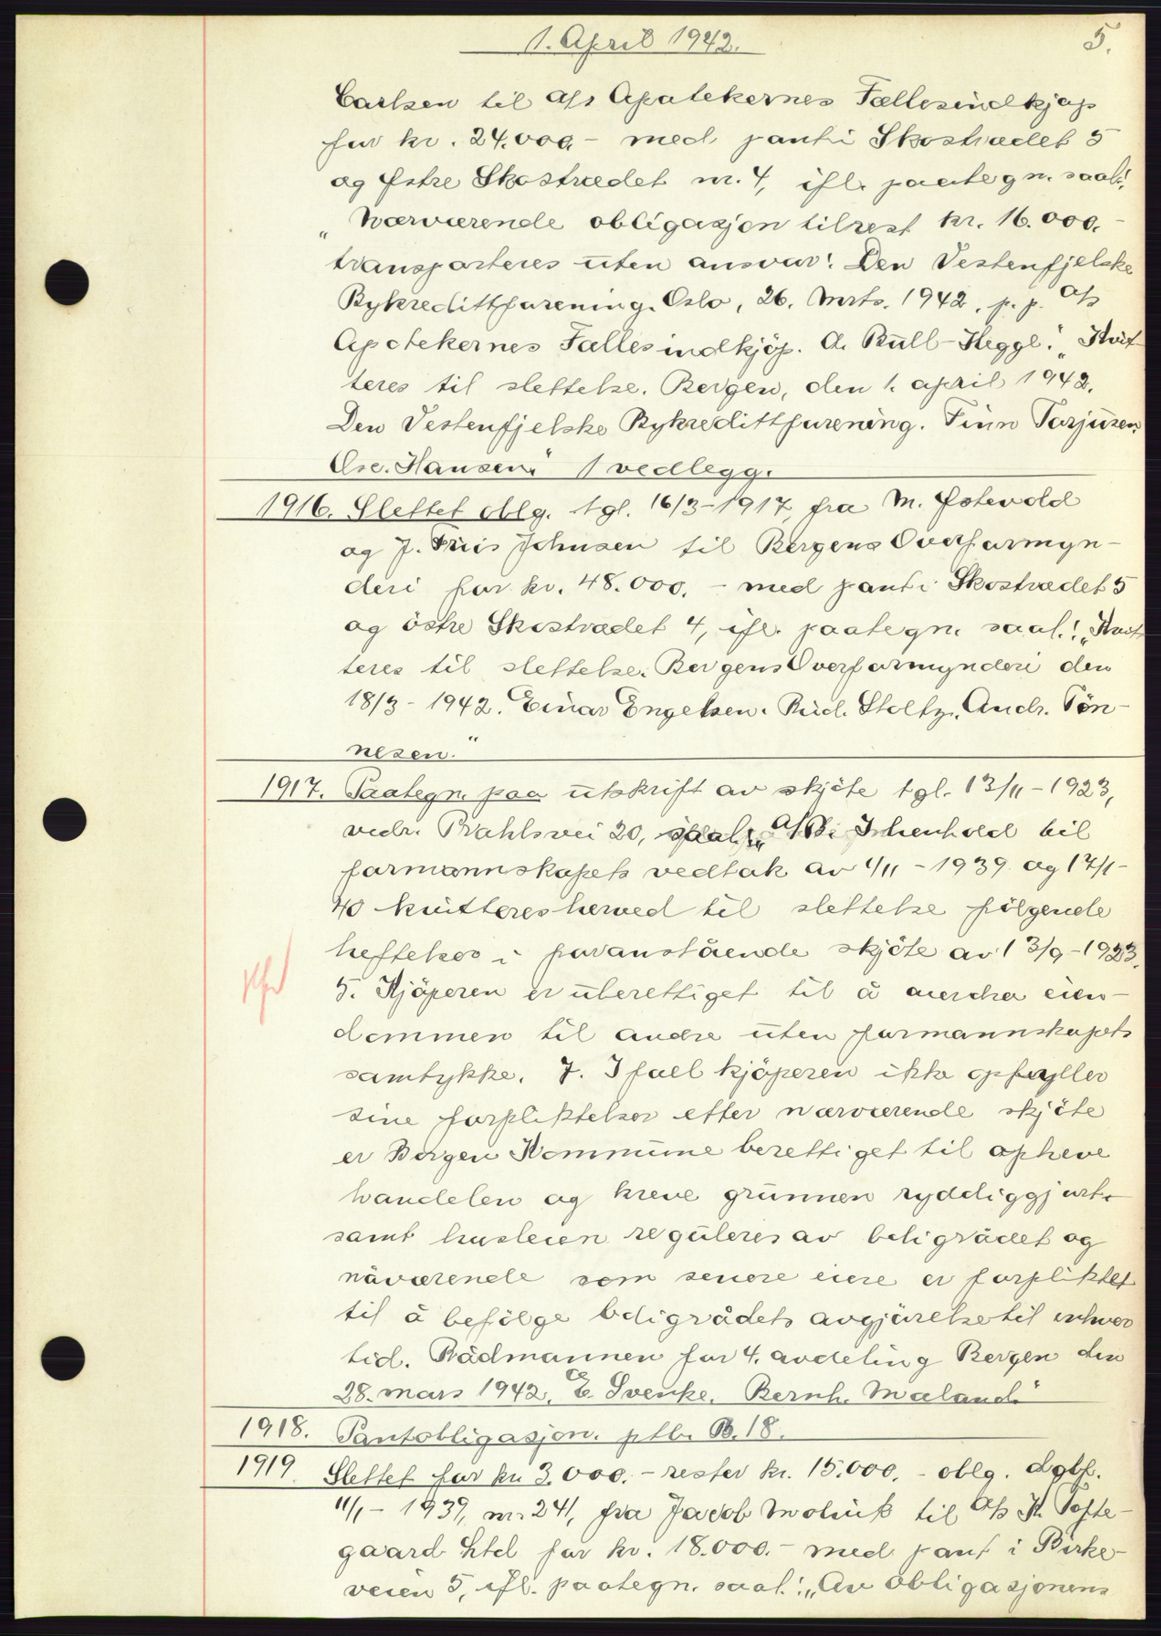 1. April 1942.
5.
Carlsen til A/s Apotekernes Fællesindkjøp
for kr. 24.000.- med pant i Skostrædet 5
og Østre Skostrædet nr. 4, ifl. paategn. saal.:
„Nærværende obligasjon tilrest kr. 16.000.-
transporteres uten ansvar: Den Vestenfjelske
Bykredittforening. Oslo, 26. Mrts. 1942. p.p. A/s
Apotekernes Fællesindkjöp. A. Bull-Hegge." „Kvit-
teres til slettelse. Bergen, den 1. april 1942.
Den Vestenfjelske Bykredittforening. Finn Torjusen
Osc. Hansen." 1 vedlegg.
1916. Slettet oblg. tgl. 16/3-1917, fra M. Østevold
og J. Friis Johnsen til Bergens Overformyn-
deri for kr. 48.000.- med pant i Skostrædet 5
og östre Skostrædet 4, ifl. paategn. saal.: „Kvit-
teres til slettelse. Bergens Overformynderi den
18/3-1942. Einar Engelsen. Rud. Stoltz. Andr. Tön-
nesen."
1917. Paategn. paa utskrift av skjöte tgl. 13/11-1923,
vedr. Prahlsvei 20, saal.: „ I henhold til
formannskapets vedtak av 1/11-1939 og 17/1-
40 kvitteres herved til slettelse fölgende
heftelser i foranstående skjöte av 13/9-1923.
5. Kjöperen er uberettiget til å avendra eien-
dommen til andre uten formannskapets
samtykke. 7. I fall kjöperen ikke opfyller
sine forpliktelser efter nærværende skjöte
er Bergen Kommune berettiget til opheve
handelen og kreve grunnen ryddiggjort
samt husleien reguleres av boligrådet og
nåværende som senere eiere er forpliktet
til å befölge boligrådets avgjörelse til enhver
tid. Rådmannen for 4. avdeling Bergen den
28. mars 1942. E. Svenke. Bernh. Maland."
1918. Pantobligasjon. ptb. B. 18.
1919 Slettet for kr. 3.000.- rester kr. 15.000.- oblg. dgbf.
11/1-1939, nr. 241, fra Jacob Molvik til A/s K. Tofte-
gaard Ltd for kr. 18.000.- med pant i Birke-
veien 5, ifl. paategn. saal.: „Av obligasjonens